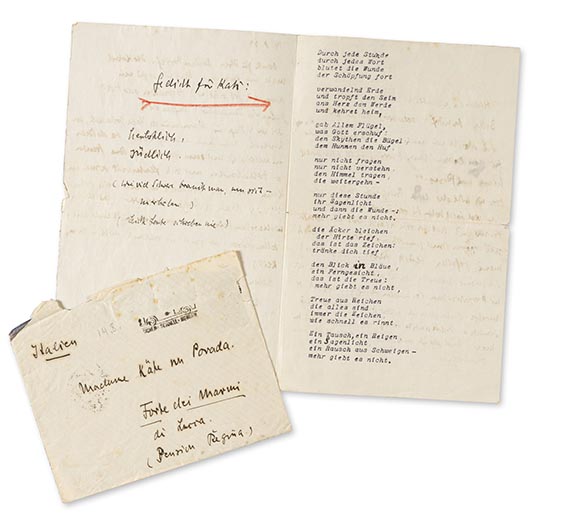 Gedicht für Kati:
Durch jede Stunde
durch jedes Wort
blutet die Wunde
der Schöpfung fort
verwanielnd Erde
und tropft den Seim
ans Herz dem Werde
und kehret heim,
gab Allem Flügel,
was Gott erschuf
den Skythen die Bügel
dem Hunnen den Huf
nur nicht fragen
nur nicht verstehn
den Himmel tragen
die weitergehn-
nur diese Stunde
ihr Sagenlicht
und dann die Wunde -:
mehr giebt es nicht.
die Äcker bleichen
der Hirte rief
das ist das Zeichen:
tränke dich tief
den Blick in Bläue,
ein Ferngesicht,
das ist die Treue:
mehr giebt es nicht,
Treue aus Reichen
die alles sind,
immer die Zeichen
wie schnell es rinnt.
Ein Tausch, ein Reigen,
ein Sagenlicht
ein Rausch aus Schweigen-
mehr giebt es nicht.
Italien
Madame Käte von Porada.
Forte dei Marmi
di Lucca.
(Pension Regina.)